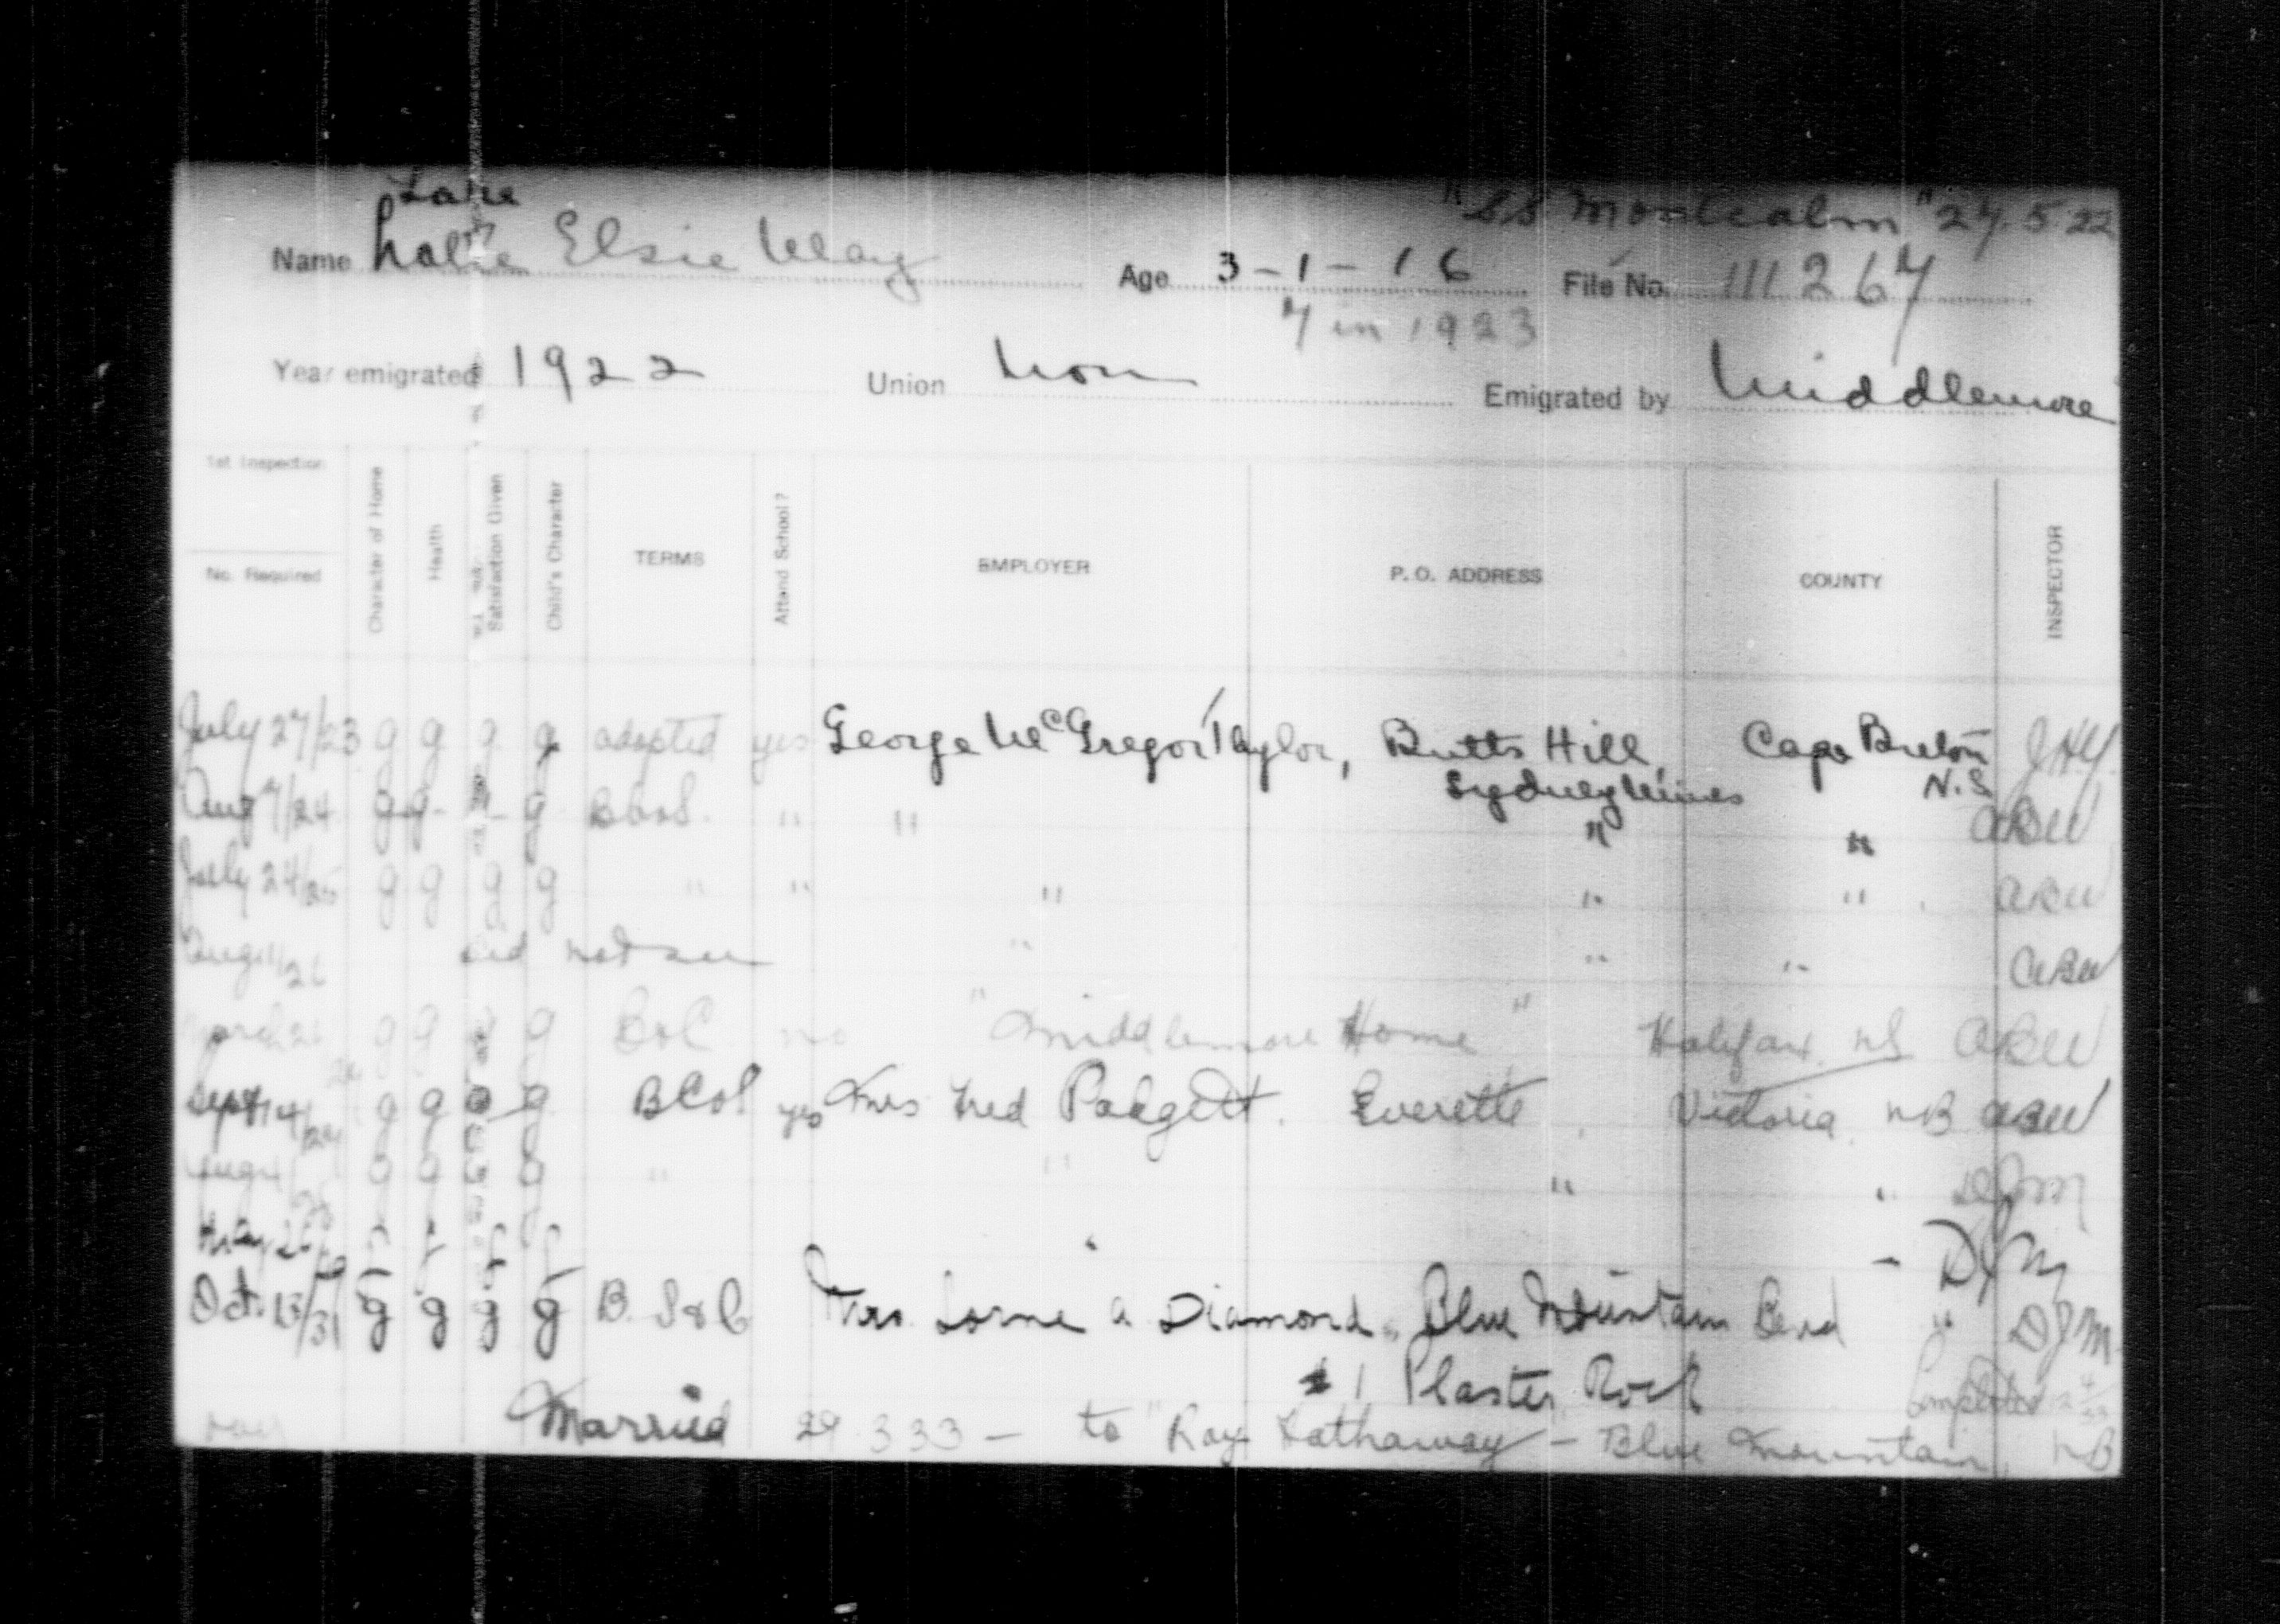 Lake "SS Montcalm" 27.5.22
Name Elsie May Age 3-1-16 File No. 111267
7 in 1923
Year emigrated 1922 Union Non Emigrated by Middlemore
1st Inspection
No. Required Character of Home Health Satisfaction Given Child's Character TERMS Attend School? EMPLOYER P. O. ADDRESS COUNTY INSPECTOR
July 27/23 g g g g adopted yes George McGregor Taylor, Butts Hill, Cape Breton
Sydney Mines N.S
Aug 7/24 g g - g " " " "
July 24/25 g g g g " " " " "
Aug 11/26 did not see " " "
g g g " Middlemore Home " Halifax NS
Sept 14/ g g g g yes Mrs Fred Padgett. Everette, Victoria, NB
g g g g " " " " DJM
May g g g g " - DJM
Oct. 13/31 g g g g B. S & C Mrs. Lorne A Diamond, Blue Mountain Bend " DJM
#1 Plaster Rock Completed
Married 29.3.33 - to Ray Hathaway - Blue Mountain, NB